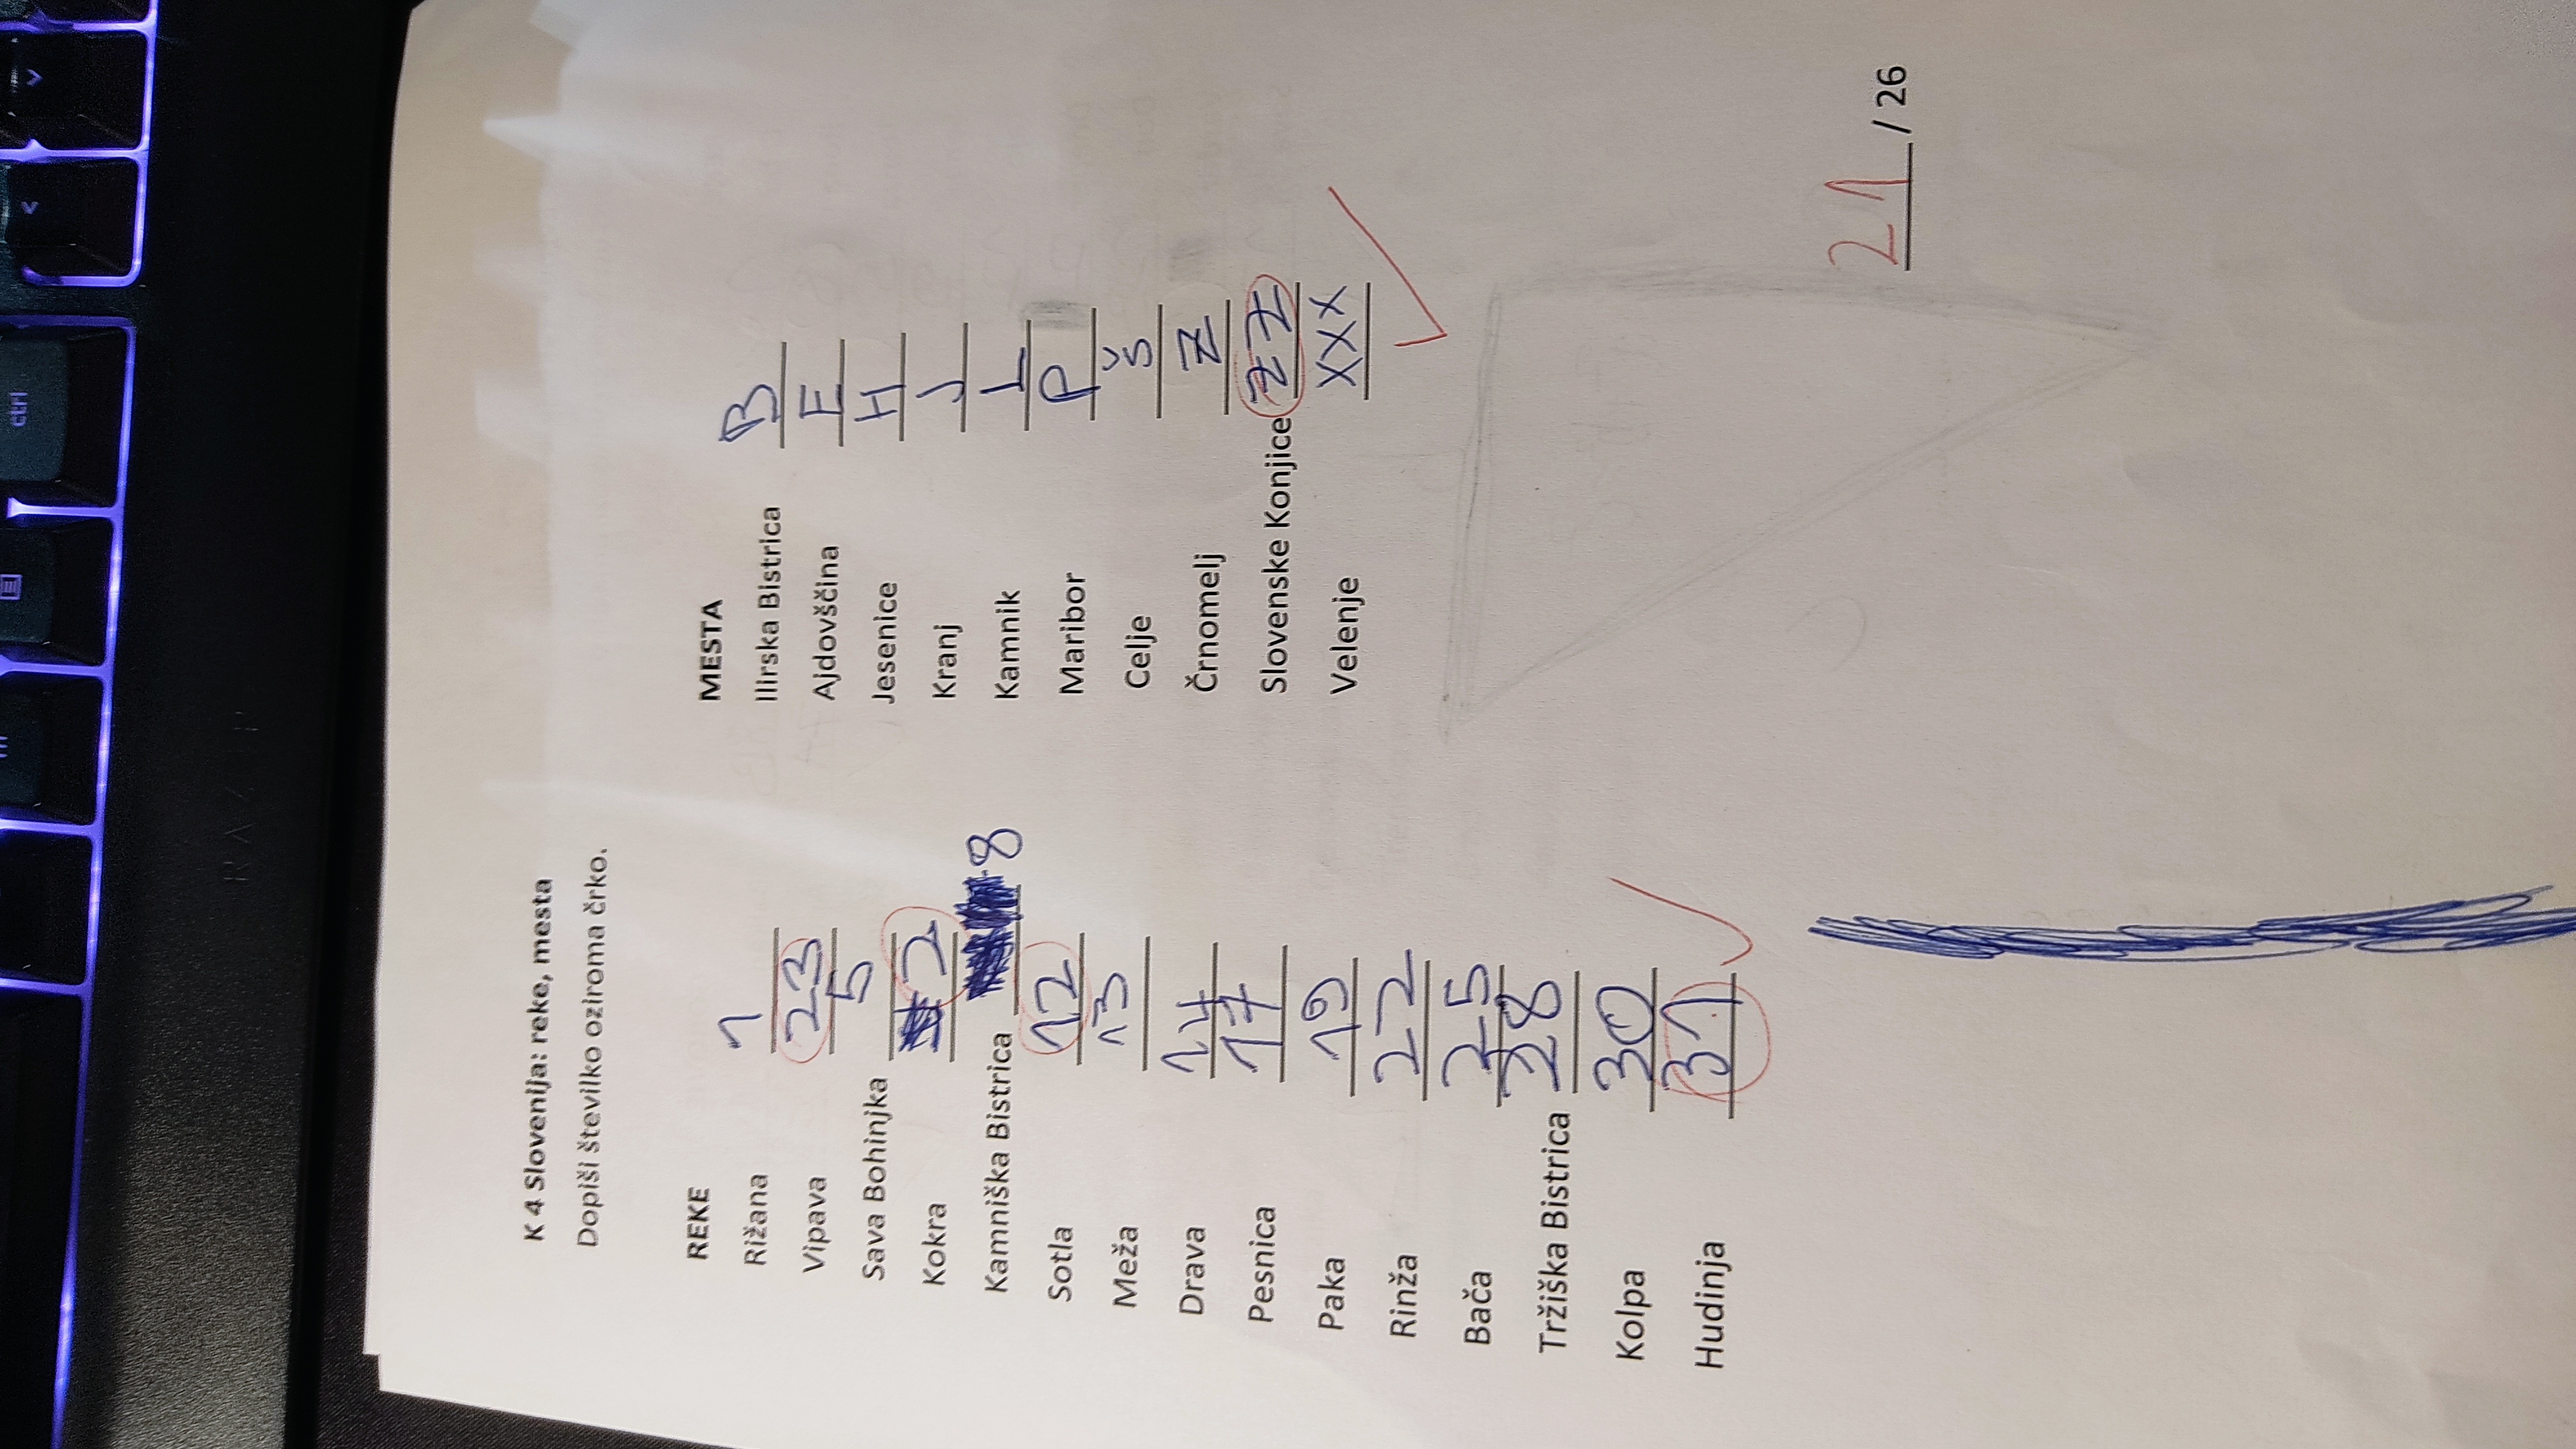 ctrl
<
K 4 Slovenija: reke, mesta
Dopiši številko oziroma črko.
REKE
Rižana 1
Vipava 23
Sava Bohinjka 5
Kokra 2
Kamniška Bistrica 8
Sotla 12
Meža 13
Drava 14
Pesnica 17
Paka 19
Rinža 22
Bača 25
Tržiška Bistrica 28
Kolpa 30
Hudinja 31
MESTA
Ilirska Bistrica B
Ajdovščina E
Jesenice H
Kranj J
Kamnik L
Maribor P
Celje Š
Črnomelj Z
Slovenske Konjice ZZ
Velenje XXX
21 / 26